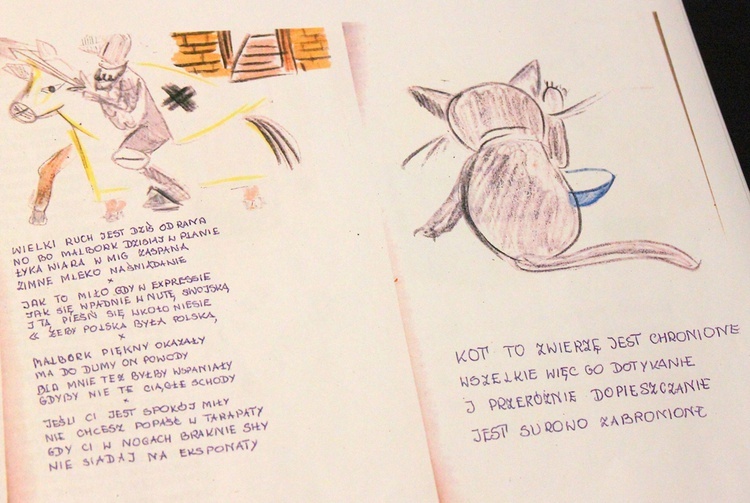 WIELKI RUCH JEST DZIŚ OD RANA
NO BO MALBORK DZISIAJ W PLANIE
ŁYKA WIARA W MIG ZASPANA
ZIMNE MLEKO NA ŚNIADANIE
*
JAK TO MIŁO GDY W EXPRESSIE
JAK SIĘ WPADNIE W NUTĘ SWOJSKĄ
I TA PIEŚŃ SIĘ WKOŁO NIESIE
« ŻEBY POLSKA BYŁA POLSKĄ,
*
MALBORK PIĘKNY OKAZAŁY
MA DO DUMY ON POWODY
DLA MNIE TEŻ BYŁBY WSPANIAŁY
GDYBY NIE TE CIĄGŁE SCHODY
*
JEŚLI CI JEST SPOKÓJ MIŁY
NIE CHCESZ POPAŚĆ W TARAPATY
GDY CI W NOGACH BRAKNIE SIŁY
NIE SIADAJ NA EKSPONATY
KOT TO ZWIERZĘ JEST CHRONIONE
WSZELKIE WIĘC GO DOTYKANIE
I PRZERÓŻNIE DOPIESZCZANIE
JEST SUROWO ZABRONIONE